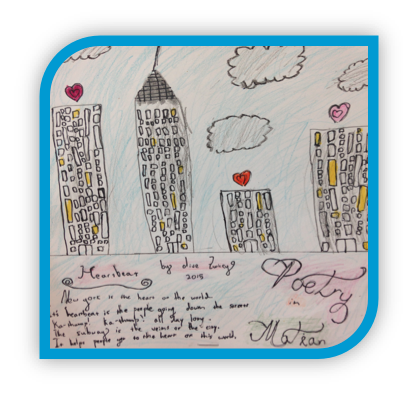 Heartbeat
by
2015
New york is the heart of the world.
heartbeat is the people going down the street
Ka-thump! Ka-thump! all day long.
The subways is the veins of the city.
It helps people go to the heart of this world.
Poetry
in
Motion